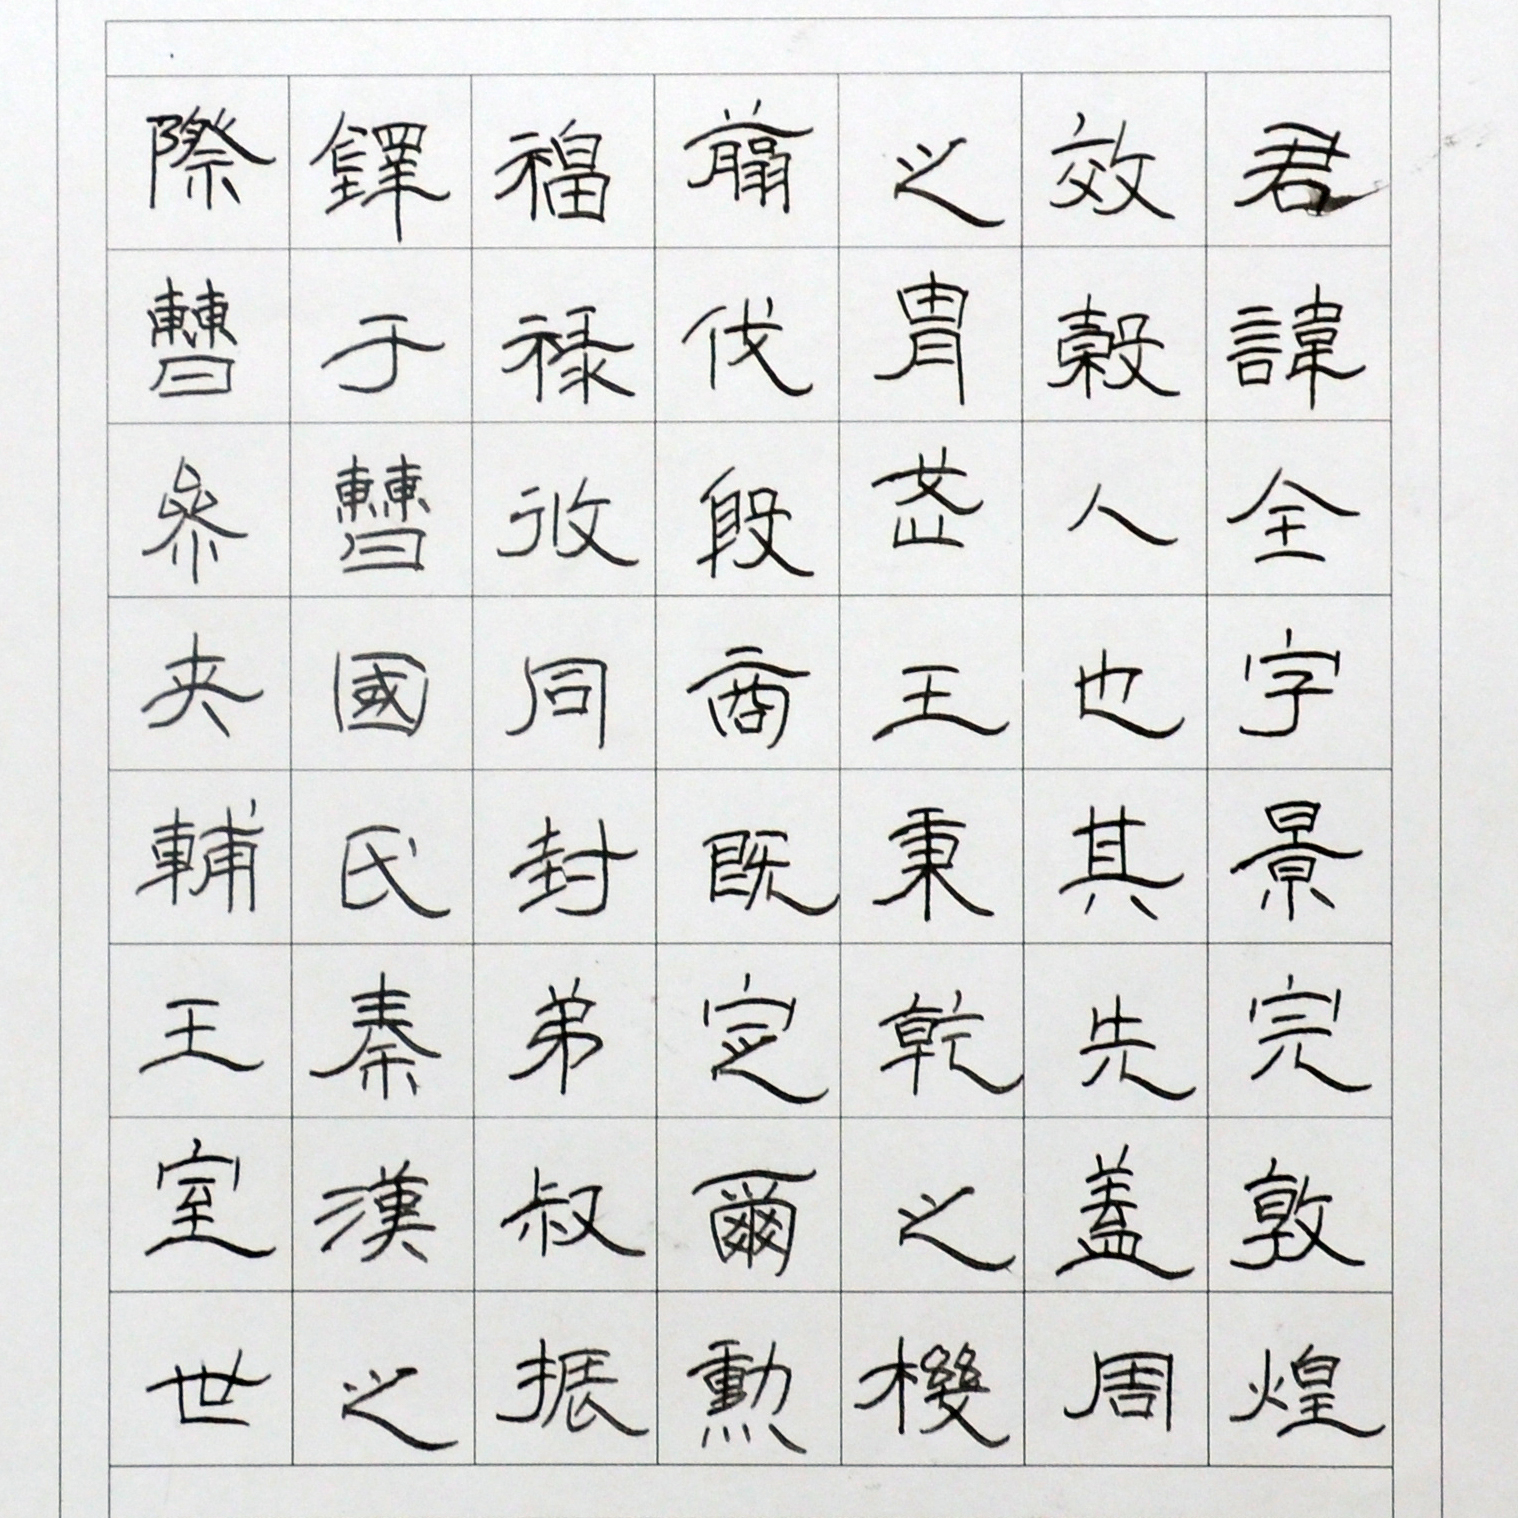 君諱全字景完敦煌
效穀人也其先蓋周
之胄武王秉乾之機
翦伐殷商既定爾勲
福禄攸同封弟叔振
鐸于曹國氏秦漢之
際曹參夾輔王室世